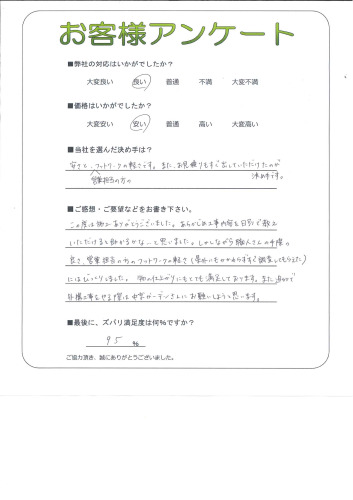 お客様アンケート
■弊社の対応はいかがでしたか？
大変良い 良い 普通 不満 大変不満
■価格はいかがでしたか？
大変安い 安い 普通 高い 大変高い
■当社を選んだ決め手は？
安さと、フットワークの軽さです。また、お見積りもすぐ出していただけたのが
営業担当の方の 決め手です。
■ご感想・ご要望などをお書き下さい。
この度は施工ありがとうございました。あらかじめ工事内容を日別で教え
いただけると助かるかな…と思いました。しかしながら職人さんの手際の
良さ、営業担当の方のフットワークの軽さ（業外にもかかわらずすぐ調査してもらえた）
にはびっくりしました。物の仕上がりにもとても満足しております。また
外構工事をやる際は ガーデンさんにお願いしようと思います。
■最後に、ズバリ満足度は何％ですか？
95 ％
ご協力頂き、誠にありがとうございました。